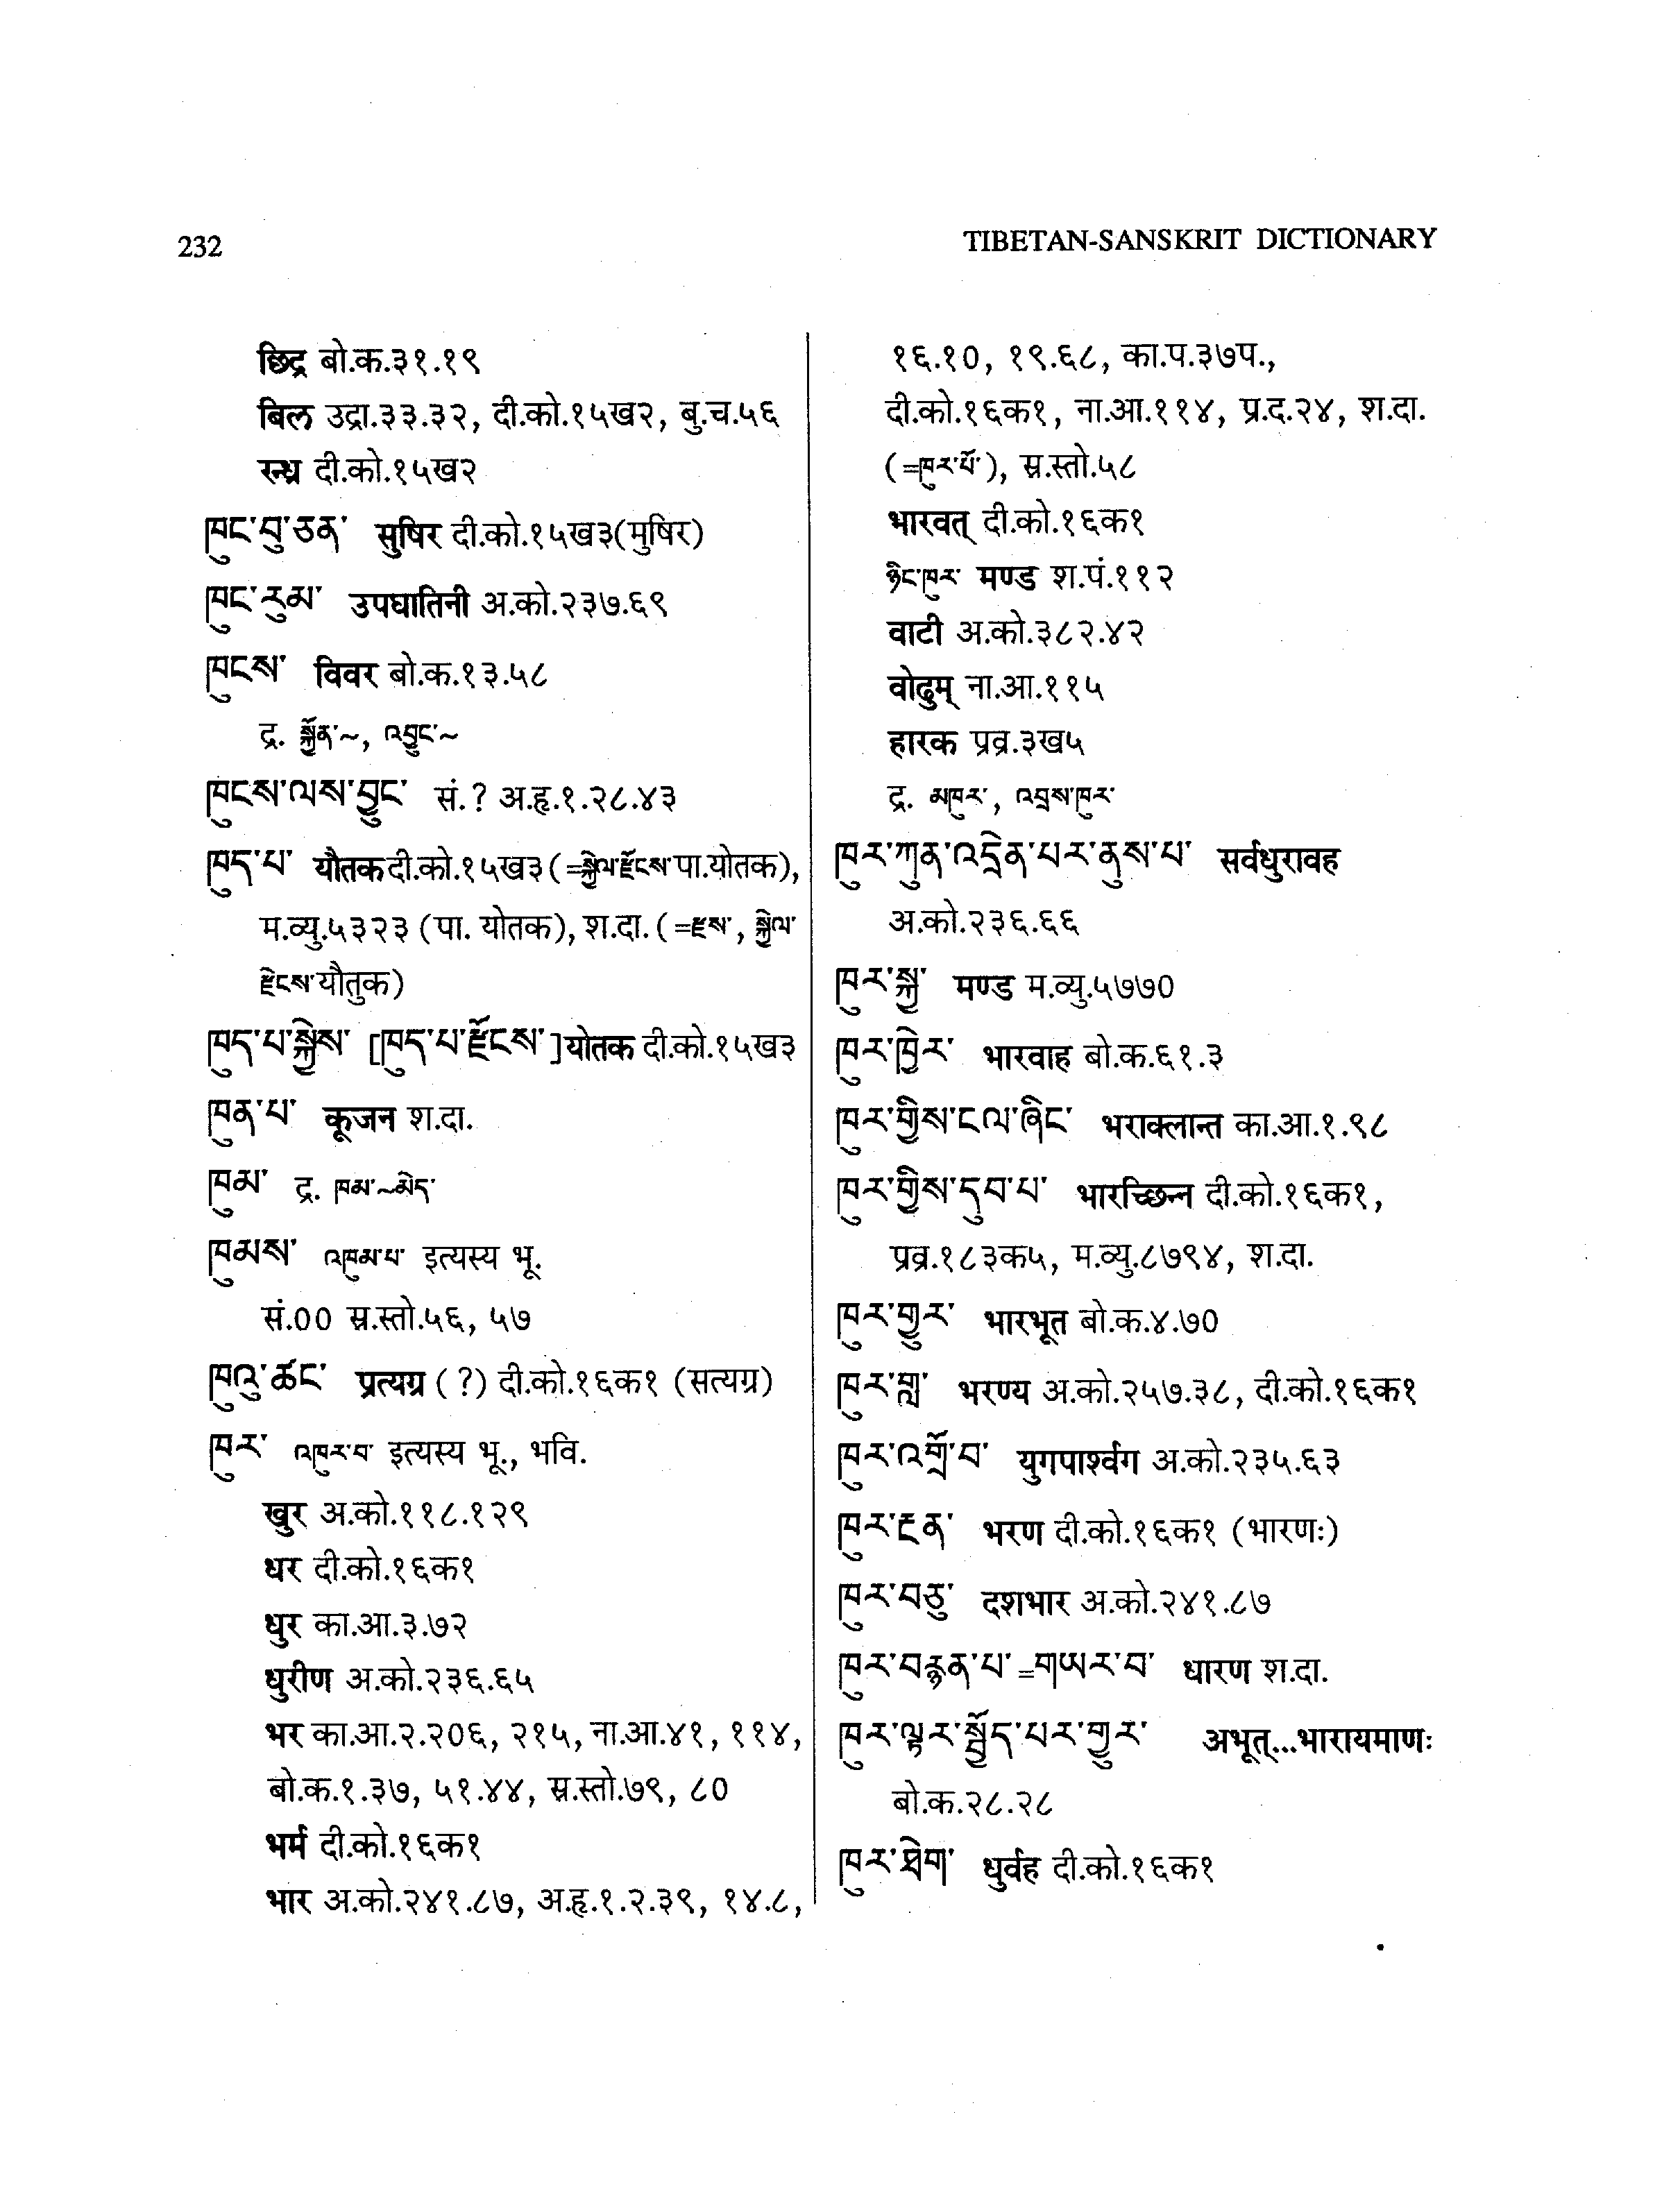 232
TIBETAN-SANSKRIT DICTIONARY
छिद्र बो.क.३१.१९
बिल उद्रा.३३.३२, दी.को.१५ख२, बु.च.५६
रन्ध्र दी.को.१५ख२
ཁུང་བུ་ཅན་ सुषिर दी.को.१५ख३(मुषिर)
ཁུང་རུམ་ उपघातिनी अ.को.२३७.६९
ཁུངས་ विवर बो.क.१३.५८
द्र. སྐྱོན་~, འབྱུང་~
ཁུངས་ལས་བྱུང་ सं.? अ.हृ.१.२८.४३
ཁུད་པ་ यौतक दी.को.१५ख३ (=སྐྱེལ་རྫོངས་ पा.योतक),
म.व्यु.५३२३ (पा. योतक), श.दा. (=རྫས་, སྐྱེལ་
རྫེངས་ यौतुक)
ཁུད་པ་སྐྱེས་ [ཁུད་པ་རྫོངས་] योतक दी.को.१५ख३
ཁུན་པ་ कूजन श.दा.
ཁུམ་ द्र. ཁམ་~མེད་
ཁུམས་ འཁུམ་པ་ इत्यस्य भू.
सं.00 स्र.स्तो.५६, ५७
ཁུའུ་ཚང་ प्रत्यग्र (?) दी.को.१६क१ (सत्यग्र)
ཁུར་ འཁུར་བ་ इत्यस्य भू., भवि.
खुर अ.को.११८.१२९
धर दी.को.१६क१
धुर का.आ.३.७२
धुरीण अ.को.२३६.६५
भर का.आ.२.२०६, २१५, ना.आ.४१, ११४,
बो.क.१.३७, ५१.४४, स्र.स्तो.७९, ८०
भर्म दी.को.१६क१
भार अ.को.२४१.८७, अ.हृ.१.२.३९, १४.८,
१६.१०, १९.६८, का.प.३७प.,
दी.को.१६क१, ना.आ.११४, प्र.द.२४, श.दा.
(=ཁུར་པོ་), स्र.स्तो.५८
भारवत् दी.को.१६क१
ཉིང་ཁུར་ मण्ड श.पं.११२
वाटी अ.को.३८२.४२
वोढुम् ना.आ.११५
हारक प्रव्र.३ख५
द्र. མཁུར་, འབྲས་ཁུར་
ཁུར་ཀུན་འདྲེན་པར་ནུས་པ་ सर्वधुरावह
अ.को.२३६.६६
ཁུར་སྐྱ་ मण्ड म.व्यु.५७७०
ཁུར་ཁྱེར་ भारवाह बो.क.६१.३
ཁུར་གྱིས་ངལ་ཞིང་ भराक्लान्त का.आ.१.९८
ཁུར་གྱིས་དུབ་པ་ भारच्छिन्न दी.को.१६क१,
प्रव्र.१८३क५, म.व्यु.८७९४, श.दा.
ཁུར་གྱུར་ भारभूत बो.क.४.७०
ཁུར་གླ་ भरण्य अ.को.२५७.३८, दी.को.१६क१
ཁུར་འགྲོ་བ་ युगपार्श्वग अ.को.२३५.६३
ཁུར་ངན་ भरण दी.को.१६क१ (भारणः)
ཁུར་བཅུ་ दशभार अ.को.२४१.८७
ཁུར་བརྙན་པ་=གཡར་བ་ धारण श.दा.
ཁུར་ལྟར་སྤྱོད་པར་གྱུར་ अभूत्...भारायमाणः
बो.क.२८.२८
ཁུར་ཐེག་ धुर्वह दी.को.१६क१